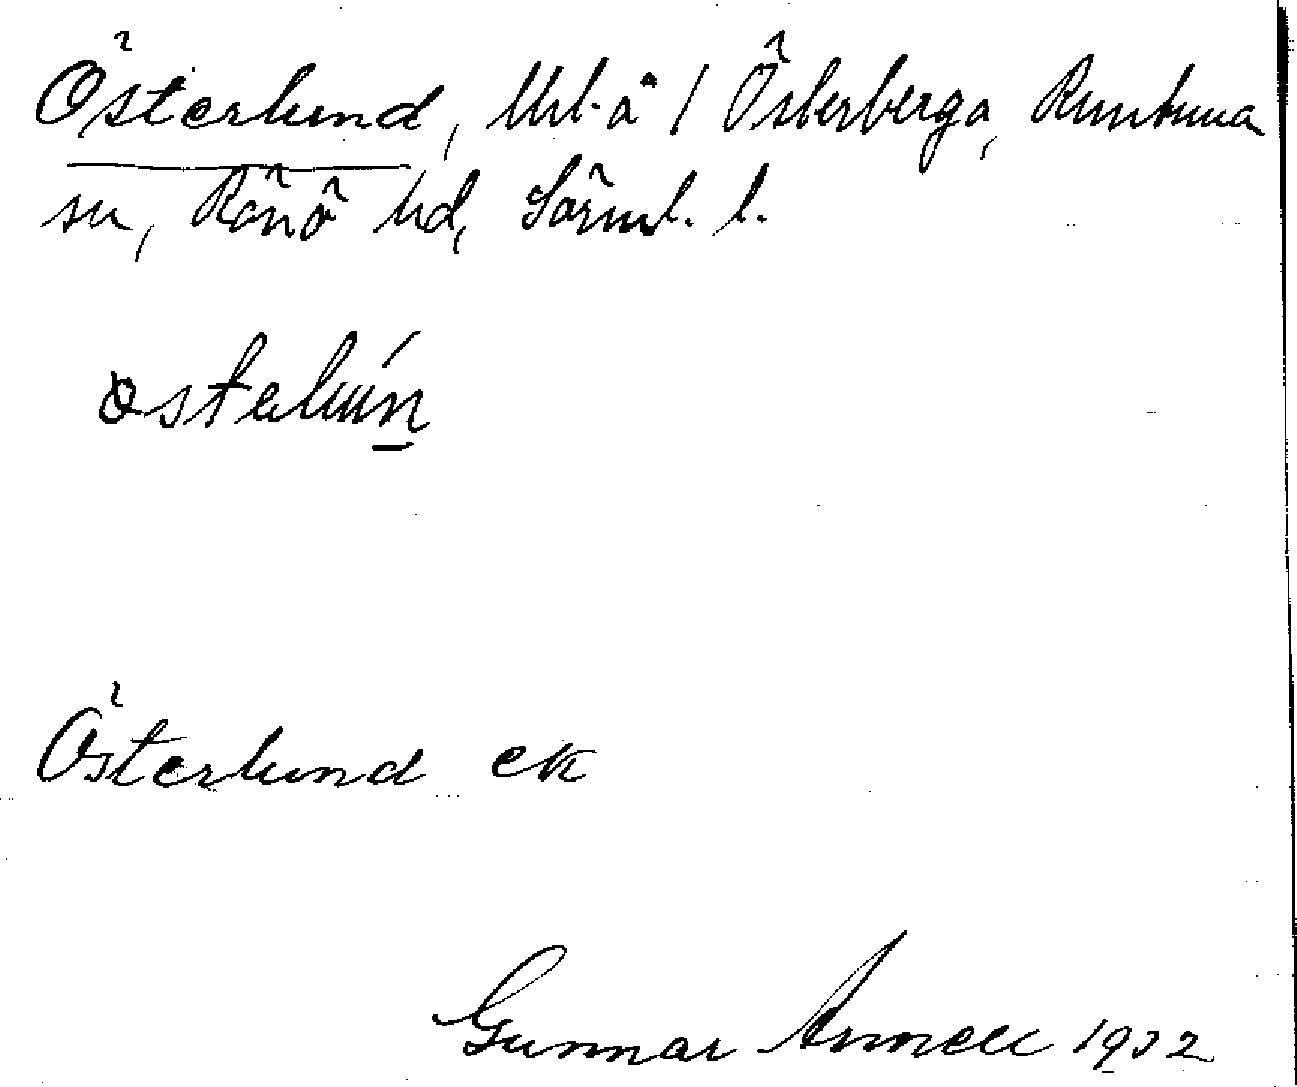 Österlund, Utl-å / Österberga, Runtuna
sn, Rönö hd, Sörml. l.
østeluń
Österlund ek
Gunnar Annell 1932